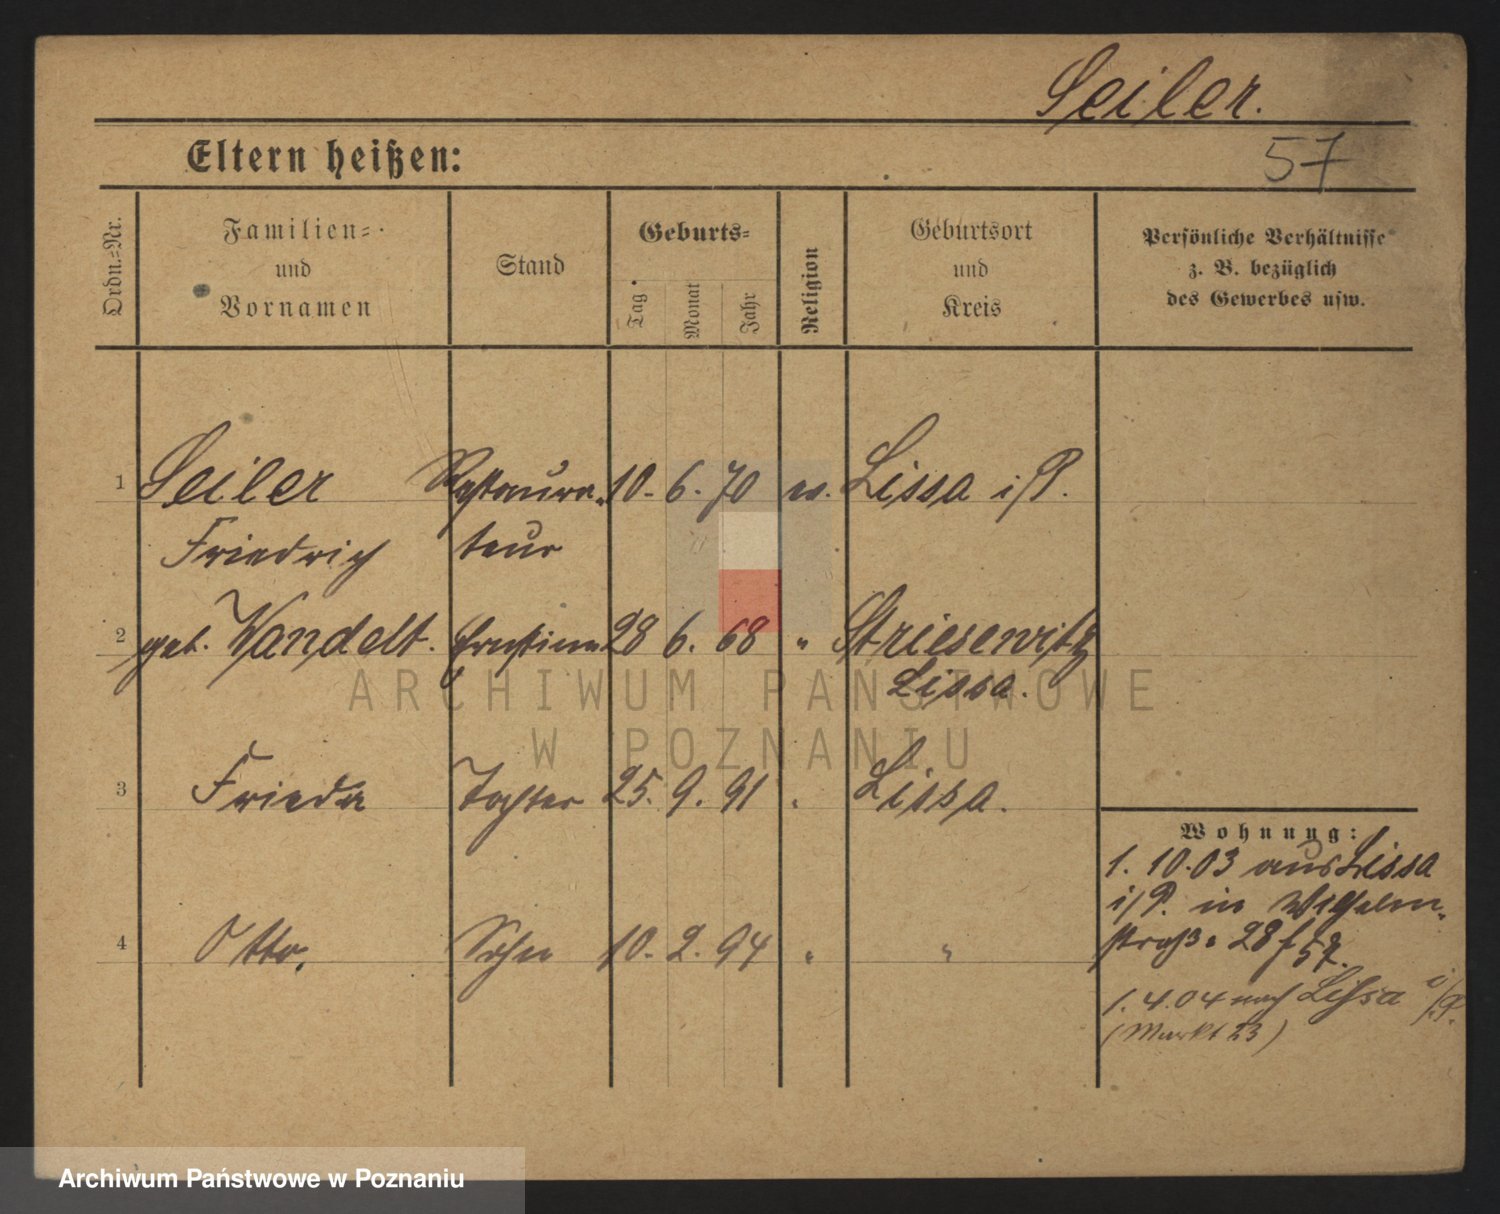 Seiler.
57
Eltern heißen:
Ordn.=Nr.
Familien=
und
Vornamen
Stand
Geburts=
Tag
Monat
Jahr
Religion
Geburtsort
und
Kreis
Persönliche Verhältnisse
z. B. bezüglich
des Gewerbes usw.
1 Seiler Restaura- 10. 6. 70 ev. Lissa i/P.
Friedrich teur
2 geb. Wandelt. Ernstine 28 6. 68 " Striesewitz
Lissa.
3 Frieda Tochter 25. 9. 91 " Lissa.
4 Otto. Sohn 10. 2. 94 " "
Wohnung:
1. 10.03 aus Lissa
i/P. in Wilhelm-
straße 28 f 57.
1. 4.04 nach Lissa i/P.
(Markt 23)
ARCHIWUM PAŃSTWOWE
W POZNANIU
Archiwum Państwowe w Poznaniu